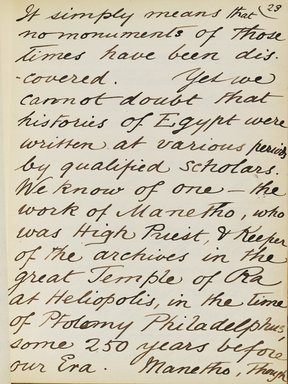 23
It simply means that
no monuments of those
times have been dis-
-covered. Yet we
cannot doubt that
histories of Egypt were
written at various periods
by qualified scholars.
We know of one — the
work of Manetho, who
was High Priest, & Keeper
of the archives in the
great Temple of Ra
at Heliopolis, in the time
of Ptolemy Philadelphus,
some 250 years before
our Era. Manetho, though